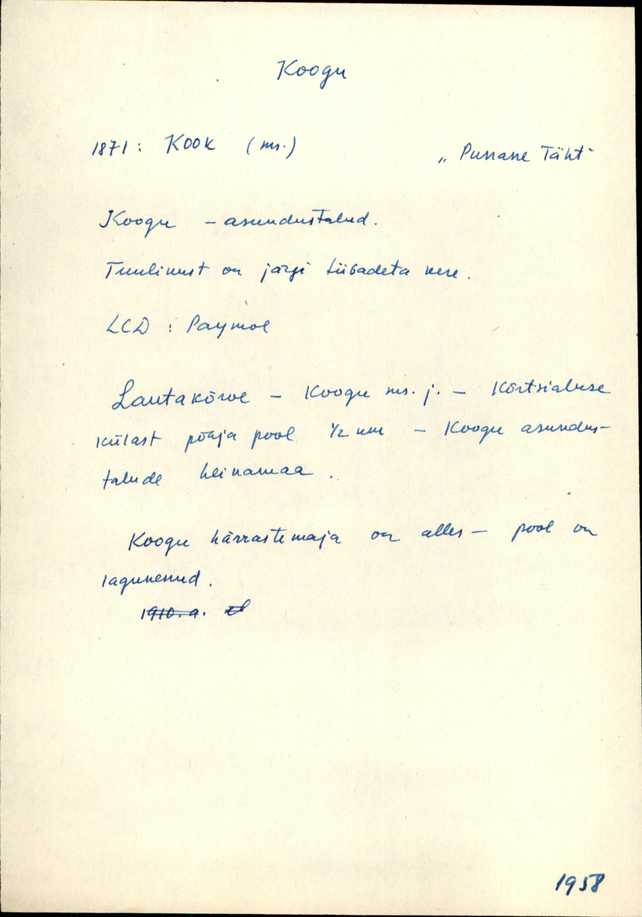 Koogu
1871: KOOK (ms.) „Punane Täht"
Koogu – asundustalud.
Tuulikust on järgi tiibadeta kere.
LCD: Paymol
Lautakõrve – Koogu ms. j. – Kõrtsialuse
külast põhja pool ½ km – Koogu asundus-
talude heinamaa.
Koogu härrastemaja on alles – pool on
lagunenud.
1910. a.
1958